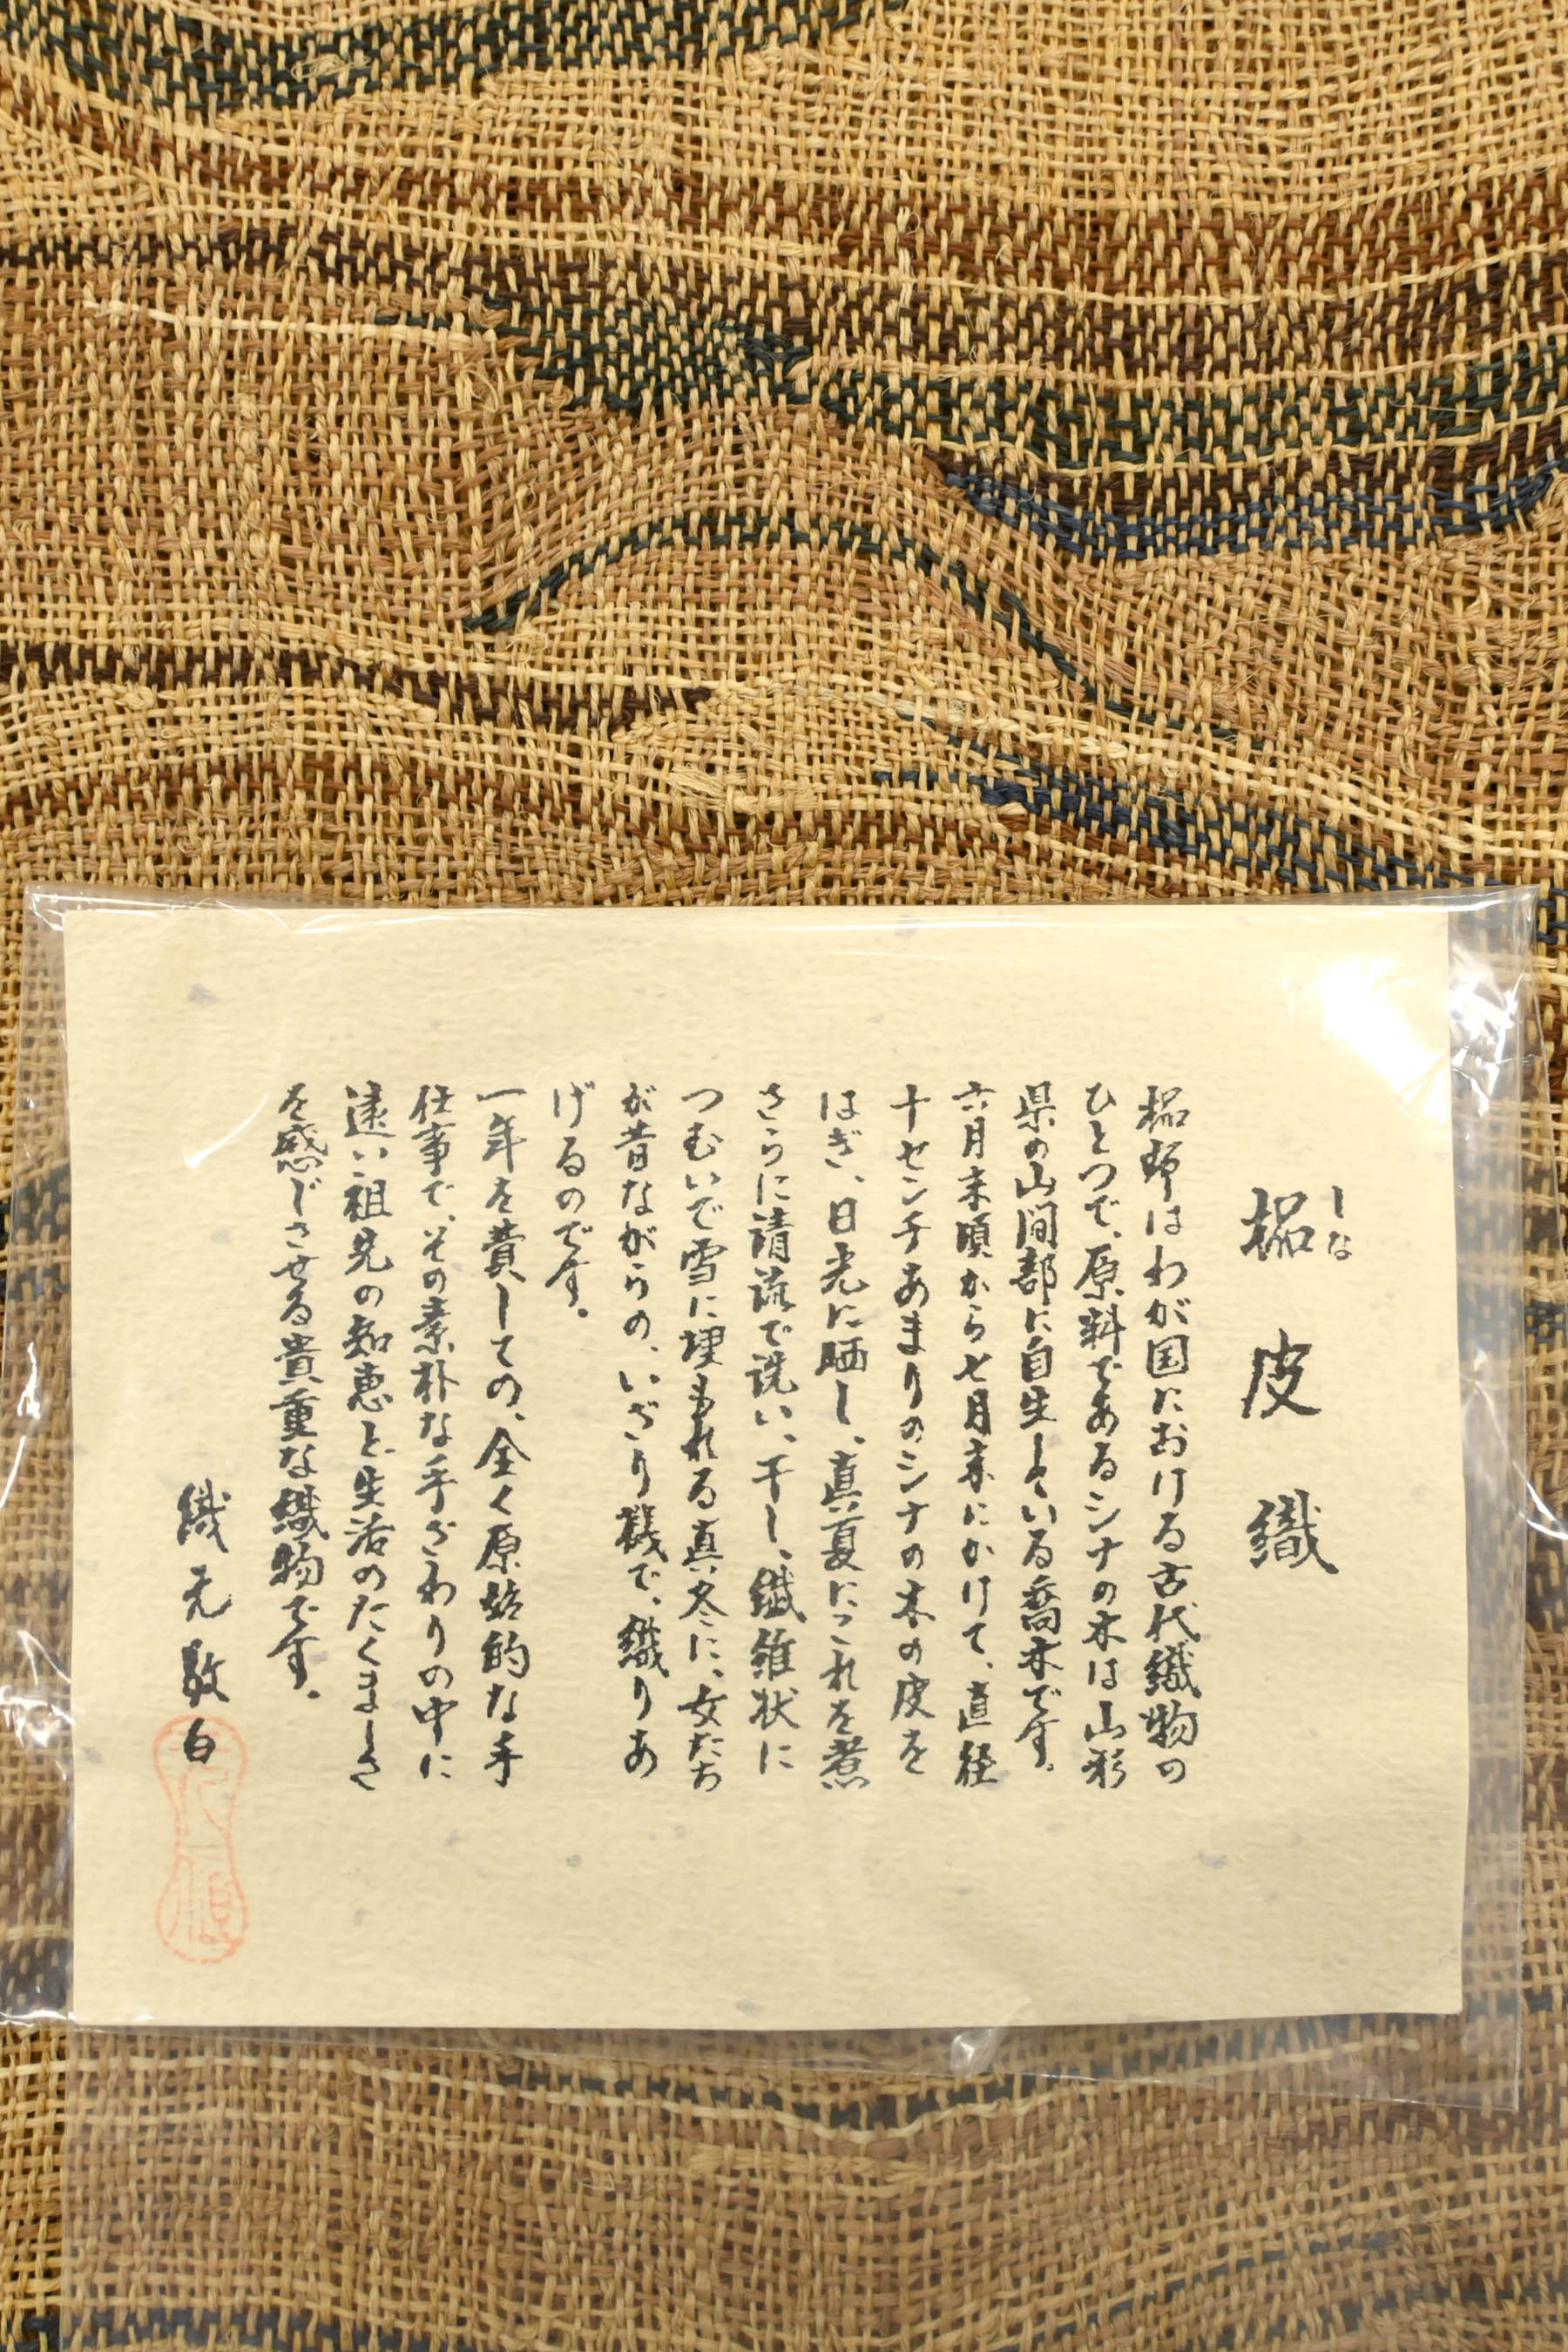 しな
榀皮織
榀野はわが国における古代織物の
ひとつで、原料であるシナの木は山形
県の山間部に自生している喬木です。
六月末頃から七月末にかけて、直径
十センチあまりのシナの木の皮を
はぎ、日光に晒し、真夏にこれを煮
さらに清流で洗い、干し、繊維状に
つむいで雪に埋もれる真冬に、女たち
が昔ながらの、いざり機で、織りあ
げるのです。
一年を費しての、全く原始的な手
仕事で、その素朴な手ざわりの中に
遠い祖先の知恵と生活のたくましさ
を感じさせる貴重な織物です。
織元敬白